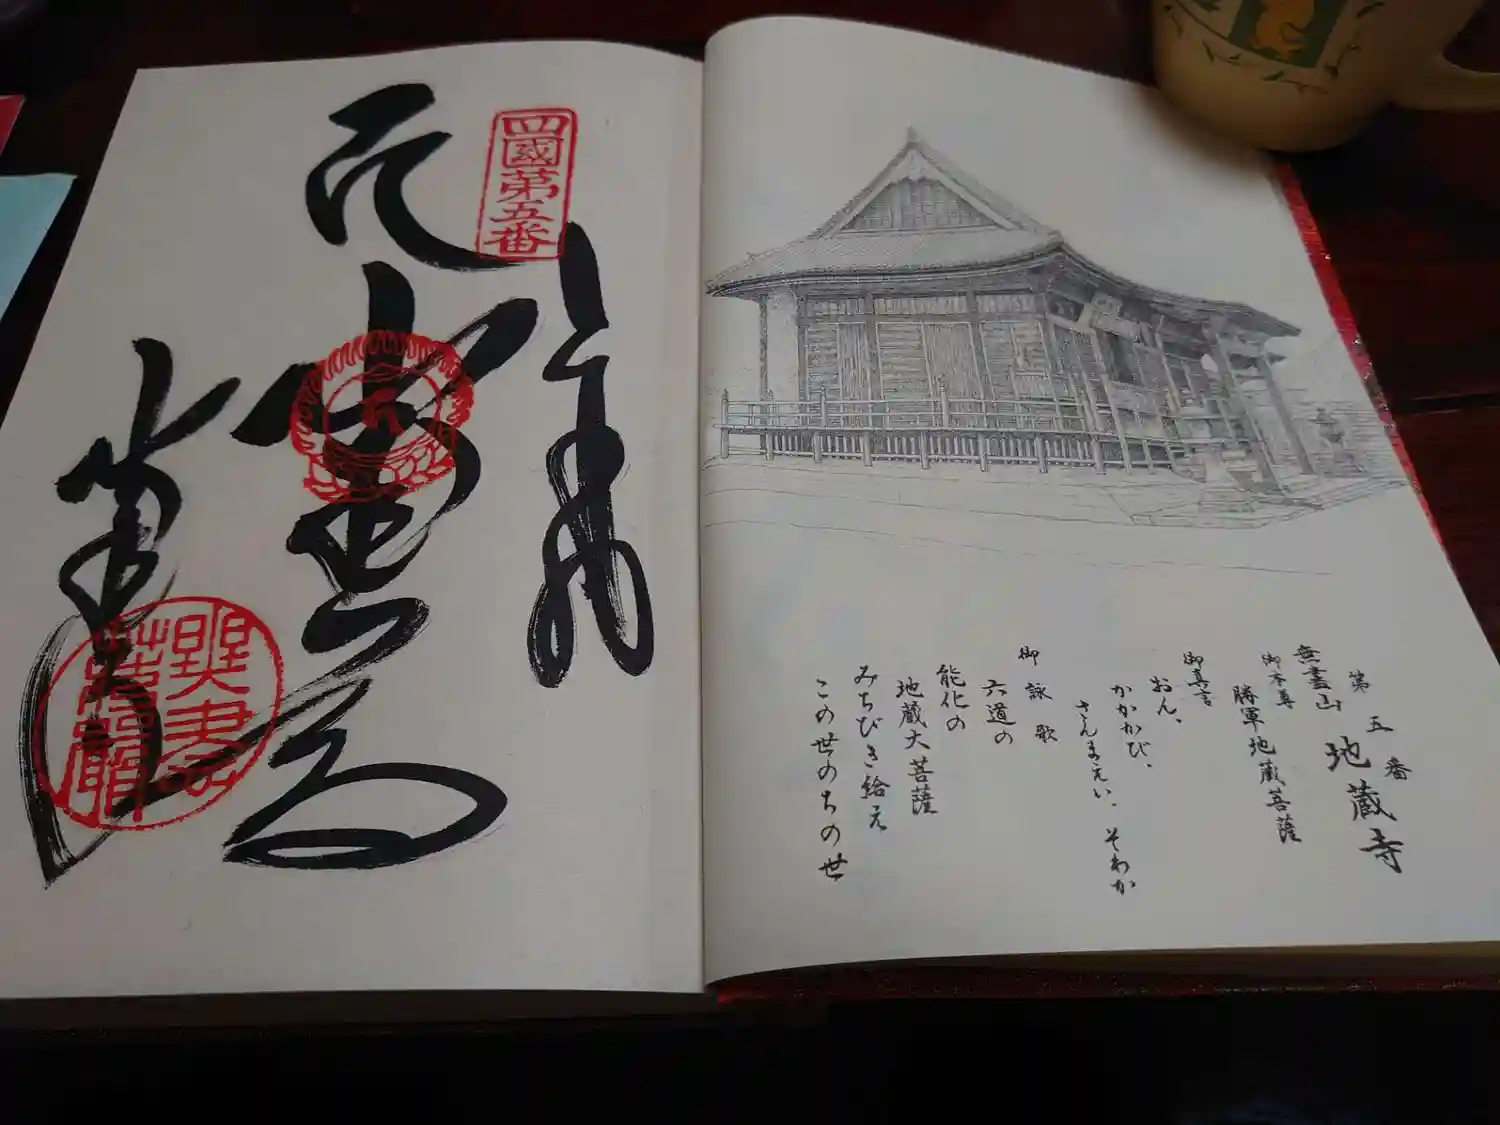 第五番
地蔵寺
無盡山
御本尊
勝軍地蔵菩薩
御真言
おん、
かかかび、
さんまえい、そわか
御詠歌
六道の
能化の
地蔵大菩薩
みちびき給え
この世のちの世
四國第五番